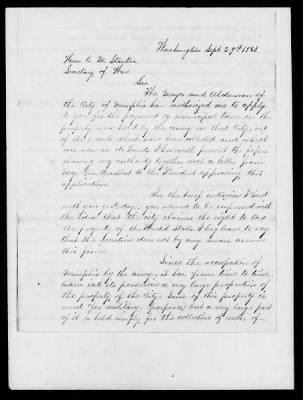 Washington Sept. 29th 1863
Hon E. M. Stanton
Secretary of War
Sir
The Mayor and Aldermen of
the City of Memphis have authorized me to apply
to you for the payment of municipal taxes on the
property now held by the army in that City, out
of the rents which have been collected and which
are now in its hands. I herewith forward the papers
showing my authority together with a letter from
Genl. Hurlbut to the President approving this
application.
In the brief interview I had
with you yesterday, you seemed to be impressed with
the idea that the city claims the right to tax
the property of the United States. I beg leave to say
that the question does not by any means assume
this form.
Since the occupation of
Memphis by the army, it has from time to time,
taken into its possession a very large proportion of
the property of the City. Some of this property is
used for military purposes, but a very large part
of it is held simply for the collection of rents, of